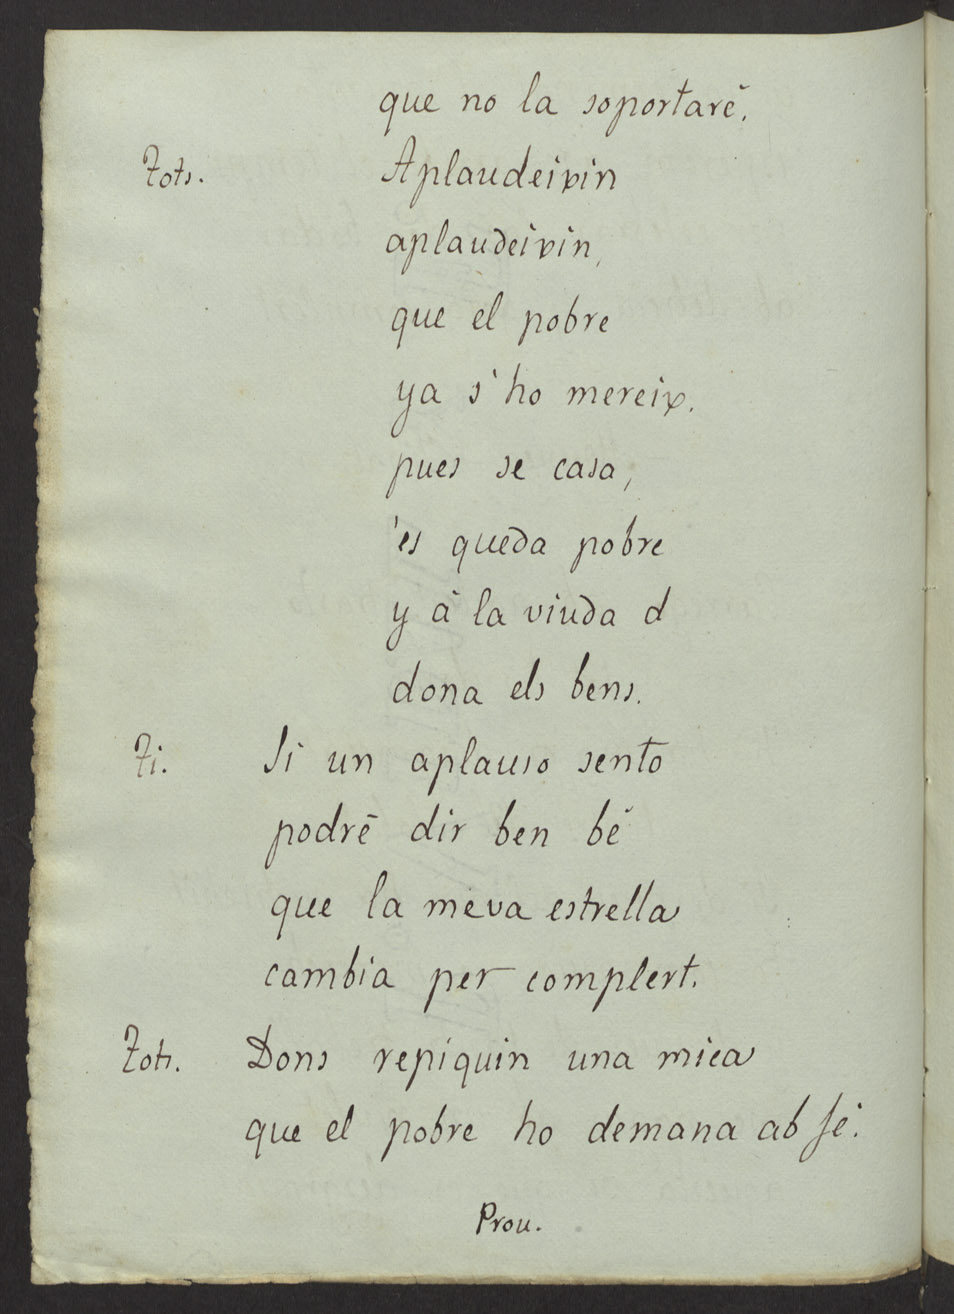 que no la soportaré.
Tots. Aplaudeixin
aplaudeixin,
que el pobre
ya s'ho mereix.
pues se casa,
és queda pobre
y à la viuda d
dona els bens.
Ti. Si un aplauso sento
podré dir ben bé
que la meva estrella
cambia per complert.
Tots. Dons repiquin una mica
que el pobre ho demana ab fé.
Prou.